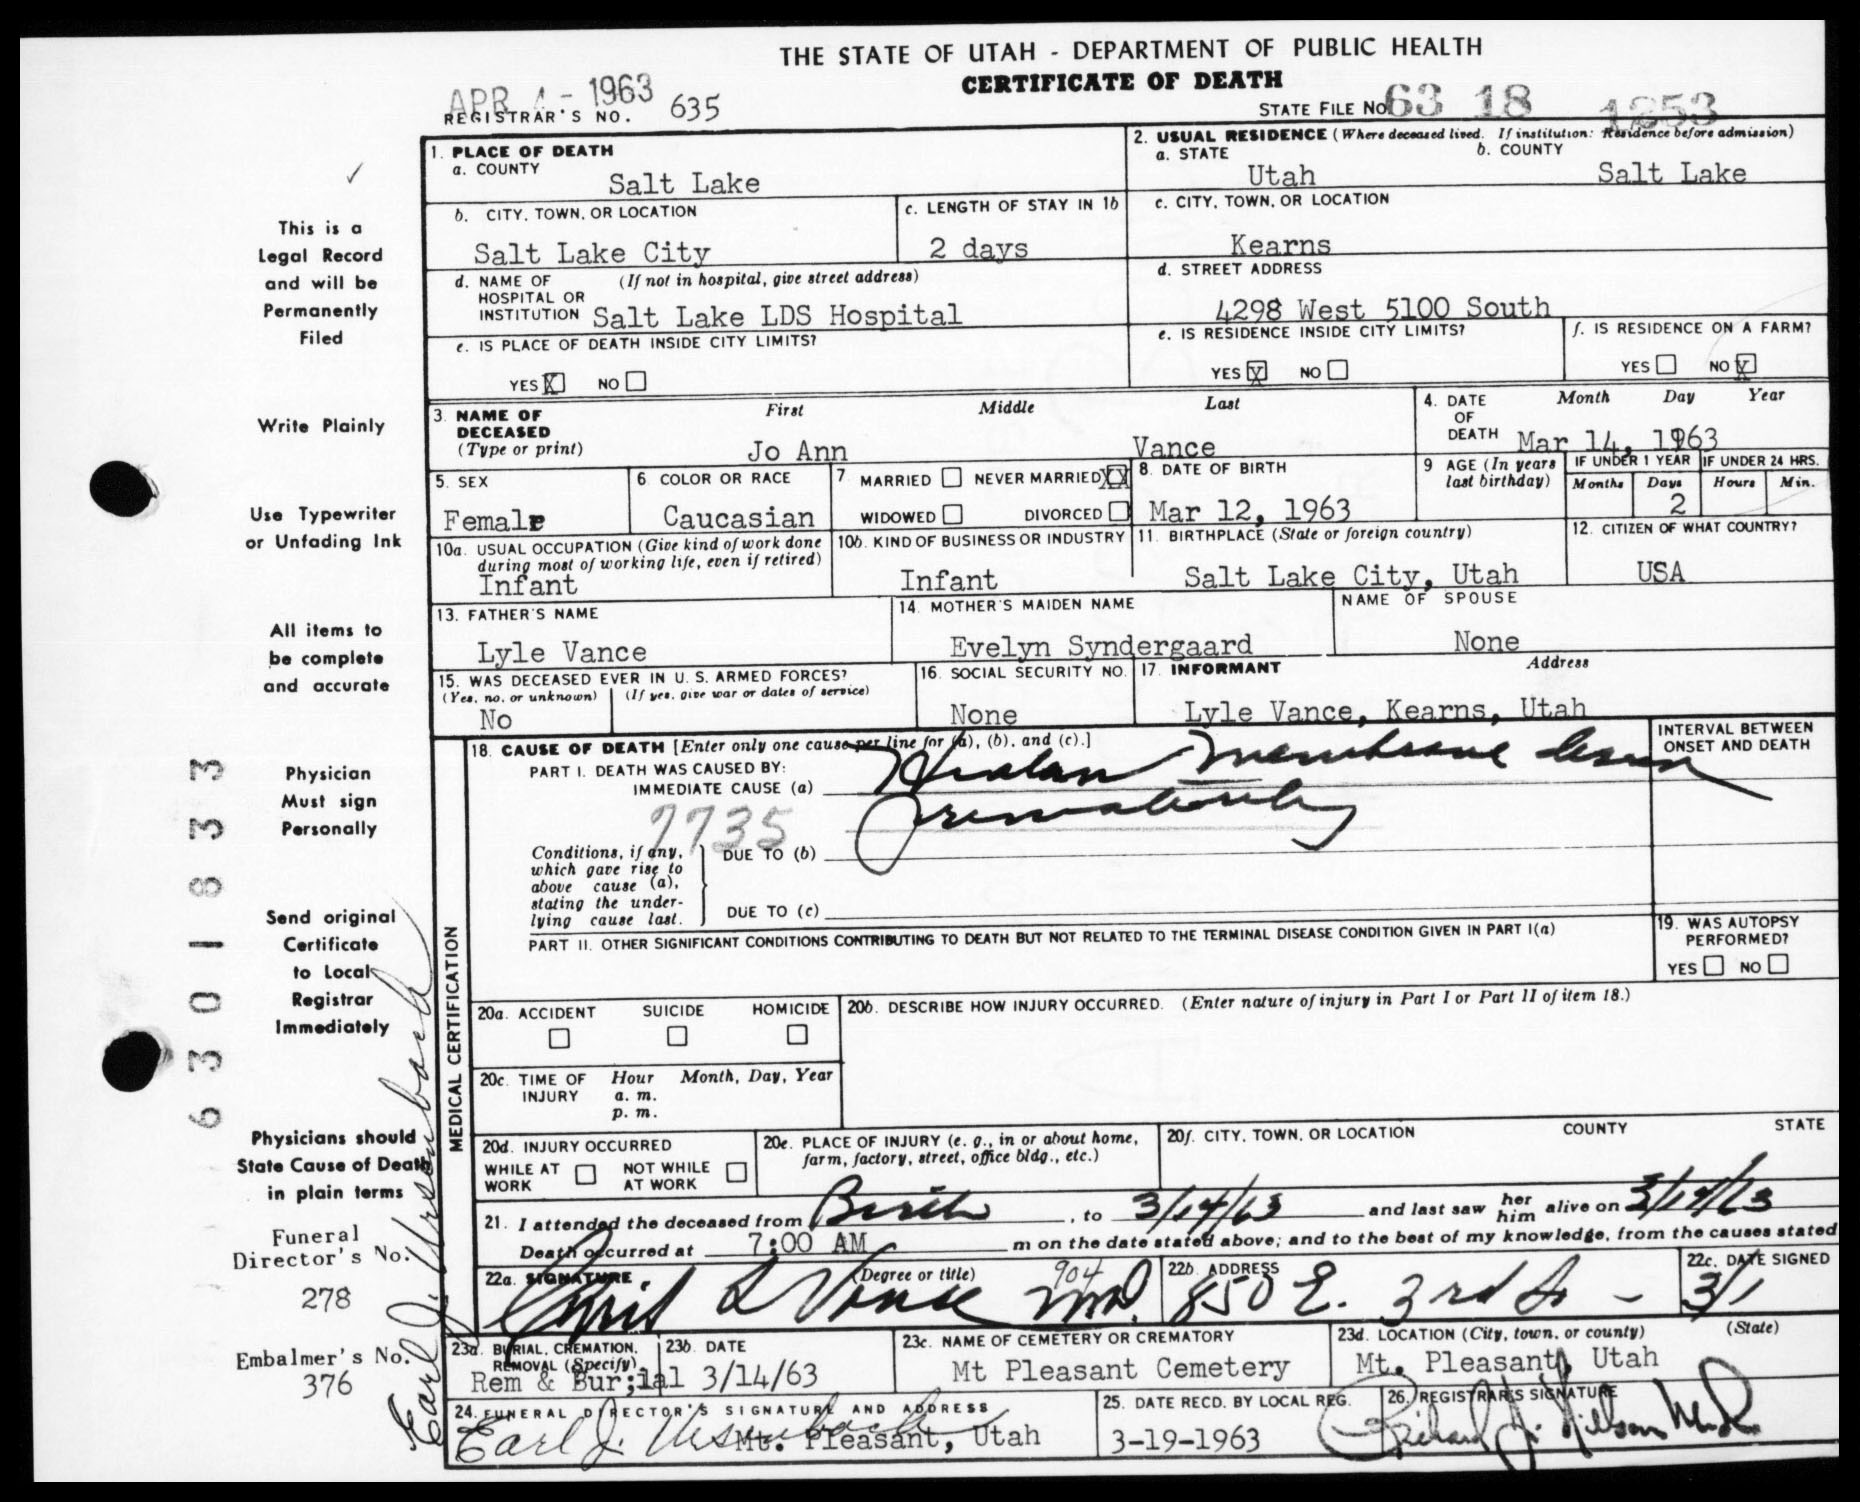 THE STATE OF UTAH - DEPARTMENT OF PUBLIC HEALTH
CERTIFICATE OF DEATH
APR 4 - 1963
REGISTRAR'S NO. 635
STATE FILE NO. 63 18 1253
1. PLACE OF DEATH
a. COUNTY
Salt Lake
2. USUAL RESIDENCE (Where deceased lived. If institution: Residence before admission)
a. STATE
Utah
b. COUNTY
Salt Lake
b. CITY, TOWN, OR LOCATION
Salt Lake City
c. LENGTH OF STAY IN 1b
2 days
c. CITY, TOWN, OR LOCATION
Kearns
d. NAME OF HOSPITAL OR INSTITUTION (If not in hospital, give street address)
Salt Lake LDS Hospital
d. STREET ADDRESS
4298 West 5100 South
e. IS PLACE OF DEATH INSIDE CITY LIMITS?
YES X NO
e. IS RESIDENCE INSIDE CITY LIMITS?
YES X NO
f. IS RESIDENCE ON A FARM?
YES NO X
3. NAME OF DECEASED (Type or print)
First Middle Last
Jo Ann Vance
4. DATE OF DEATH
Month Day Year
Mar 14, 1963
5. SEX
Female
6. COLOR OR RACE
Caucasian
7. MARRIED NEVER MARRIED XX
WIDOWED DIVORCED
8. DATE OF BIRTH
Mar 12, 1963
9 AGE (In years last birthday)
IF UNDER 1 YEAR
Months Days
2
IF UNDER 24 HRS.
Hours Min.
10a. USUAL OCCUPATION (Give kind of work done during most of working life, even if retired)
Infant
10b. KIND OF BUSINESS OR INDUSTRY
Infant
11. BIRTHPLACE (State or foreign country)
Salt Lake City, Utah
12. CITIZEN OF WHAT COUNTRY?
USA
13. FATHER'S NAME
Lyle Vance
14. MOTHER'S MAIDEN NAME
Evelyn Syndergaard
NAME OF SPOUSE
None
15. WAS DECEASED EVER IN U. S. ARMED FORCES?
(Yes, no, or unknown) (If yes, give war or dates of service)
No
16. SOCIAL SECURITY NO.
None
17. INFORMANT Address
Lyle Vance, Kearns, Utah
MEDICAL CERTIFICATION
18. CAUSE OF DEATH [Enter only one cause per line for (a), (b), and (c).]
PART I. DEATH WAS CAUSED BY:
IMMEDIATE CAUSE (a)
Hyalan membrane
prematurity
7735
Conditions, if any, which gave rise to above cause (a), stating the underlying cause last.
DUE TO (b)
DUE TO (c)
INTERVAL BETWEEN ONSET AND DEATH
PART II. OTHER SIGNIFICANT CONDITIONS CONTRIBUTING TO DEATH BUT NOT RELATED TO THE TERMINAL DISEASE CONDITION GIVEN IN PART I(a)
19. WAS AUTOPSY PERFORMED?
YES NO
20a. ACCIDENT SUICIDE HOMICIDE
20b. DESCRIBE HOW INJURY OCCURRED. (Enter nature of injury in Part I or Part II of item 18.)
20c. TIME OF INJURY
Hour Month, Day, Year
a. m.
p. m.
20d. INJURY OCCURRED
WHILE AT WORK NOT WHILE AT WORK
20e. PLACE OF INJURY (e. g., in or about home, farm, factory, street, office bldg., etc.)
20f. CITY, TOWN, OR LOCATION COUNTY STATE
21. I attended the deceased from Birth, to 3/14/63 and last saw her him alive on 3/14/63
Death occurred at 7:00 AM m on the date stated above; and to the best of my knowledge, from the causes stated
22a. SIGNATURE (Degree or title)
904
M.D.
22b. ADDRESS
850 E. 3rd So -
22c. DATE SIGNED
3/
23a. BURIAL, CREMATION, REMOVAL (Specify)
Rem & Bur;ial
23b. DATE
3/14/63
23c. NAME OF CEMETERY OR CREMATORY
Mt Pleasant Cemetery
23d. LOCATION (City, town, or county) (State)
Mt. Pleasant, Utah
24. FUNERAL DIRECTOR'S SIGNATURE AND ADDRESS
Earl J. Ursenbach
Mt. Pleasant, Utah
25. DATE RECD. BY LOCAL REG.
3-19-1963
26. REGISTRAR'S SIGNATURE
This is a
Legal Record
and will be
Permanently
Filed
Write Plainly
Use Typewriter
or Unfading Ink
All items to
be complete
and accurate
Physician
Must sign
Personally
Send original
Certificate
to Local
Registrar
Immediately
Physicians should
State Cause of Death
in plain terms
Funeral
Director's No.
278
Embalmer's No.
376
Earl J. Ursenbach
63018333